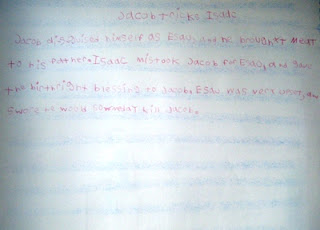 Jacob tricks Isaac
Jacob disguised himself as Esau, and he brought meat
to his father. Isaac mistook Jacob for Esau, and gave
the birthright blessing to Jacob. Esau was very upset, and
swore to would his Jacob.